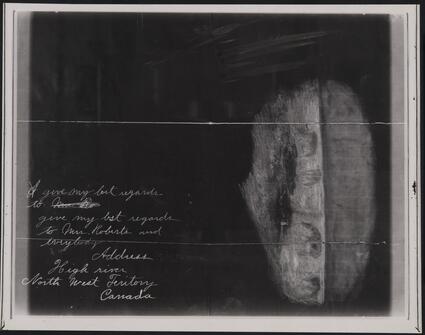 I give my best regards
to
give my bst regards
to Mrs. Roberts and
evrybody
Address
High river
North West Teritory
Canada